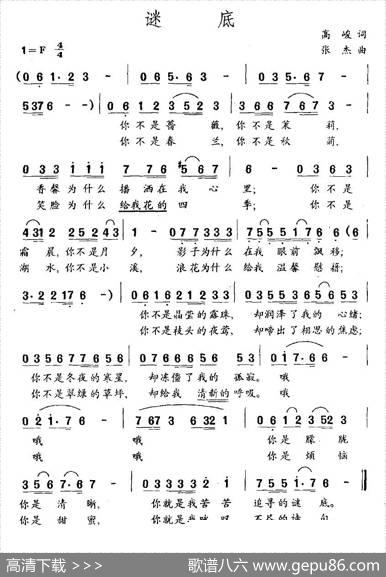 谜 底
1=F 4/4
高 峻 词
张 杰 曲
(0 6 1· 2 3 - | 0 6 5· 6 3 - | 0 3 5· 6 7 -
5376 - -) | 0 6 1 2 3 2 3 | 3 6 6 7 6 7 3 |
你 不 是 蔷 薇, 你 不 是 茉 莉,
你 不 是 春 兰, 你 不 是 秋 菊,
0 3 3 i i i | 7 7 6 #5 6 7 | 6 - 0 3 6 3 |
香馨为什么 播 洒在我心 里; 你 不 是
笑脸为什么 给我花的四 季; 你 不 是
4312 2123 | 1 - 0 7 7 3 3 3 | 7 5 5 5 1 7 6 (6 |
霜晨,你不是月 夕, 影子为什么 在我眼前飘移;
湖水,你不是小 溪, 浪花为什么 给我温馨慰藉;
3·2 2176 -) | 0 6 1 6 2 1 2 3 | 0 3 5 3 6 5 6 5 3 |
你不是晶莹的露珠, 却润泽了我的心绪;
你不是枝头的夜莺, 却啼出了相思的焦虑;
0 3 5 6 7 7 6 5 6 | 3 2 3 5 6 7 6 5 6 5 3 | 0 1 7· 6 6 - |
你不是冬夜的寒星, 却冻僵了我的孤寂。 哦
你不是翠绿的草坪, 却给我清新的呼吸。 哦
0 2 1· 6 6 - | 7673 3 6321 | 0 6 1 2 3 5 2 3 |
哦 哦 你 是 朦 胧
哦 哦 你 是 烦 恼
3 5 6 7· 6 6 - | 0 3 3 3 3 3 2 i | 7 5 5 1· 7 6 - ‖
你 是 清 晰, 你就是我苦苦 追寻的谜 底。
你 是 甜 蜜,
高清下载 >>> 歌谱八六 www.gepu86.com